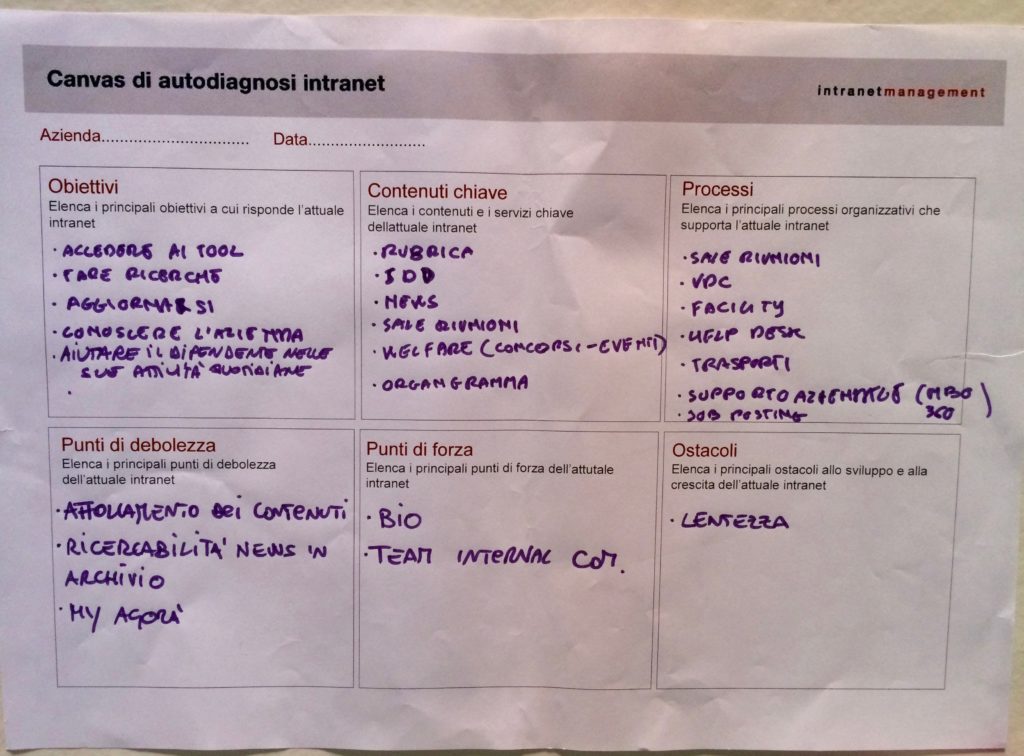 Canvas di autodiagnosi intranet
intranetmanagement
Azienda................................ Data..........................
Obiettivi
Elenca i principali obiettivi a cui risponde l'attuale
intranet
· ACCEDERE AI TOOL
· FARE RICERCHE
· AGGIORNARSI
· CONOSCERE L'AZIENDA
· AIUTARE IL DIPENDENTE NELLE
SUE ATTILITÀ QUOTIDIANE
·
Contenuti chiave
Elenca i contenuti e i servizi chiave
dellattuale intranet
· RUBRICA
· NEWS
· SALE RIUNIONI
· WELFARE (CONCORSI-EVENTI)
· ORGANIGRAMMA
Processi
Elenca i principali processi organizzativi che
supporta l'attuale intranet
· SALE RIUNIONI
· VPC
· FACILITY
· HELP DESK
· TRASPORTI
· SUPPORTO AZIENDALE (MBO
360)
· JOB POSTING
Punti di debolezza
Elenca i principali punti di debolezza
dell'attuale intranet
· AFFOLLAMENTO DEI CONTENUTI
· RICERCABILITÀ NEWS IN
ARCHIVIO
· MY AGORÀ
Punti di forza
Elenca i principali punti di forza dell'attutale
intranet
· BIO
· TEAM INTERNAL COM.
Ostacoli
Elenca i principali ostacoli allo sviluppo e alla
crescita dell'attuale intranet
· LENTEZZA